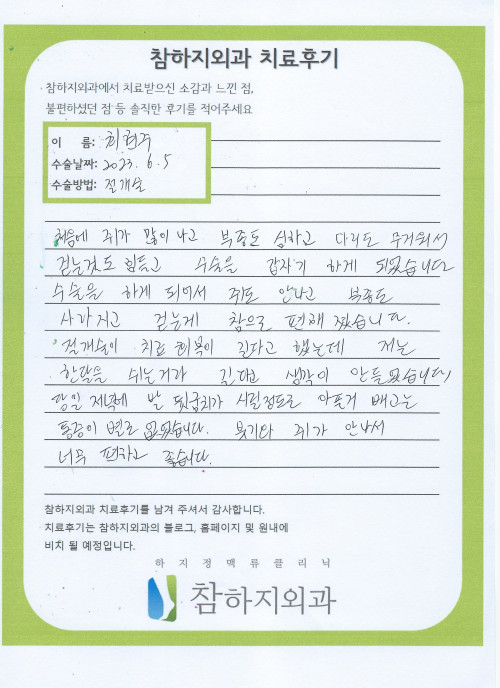 참하지외과 치료후기
참하지외과에서 치료받으신 소감과 느낀 점,
불편하셨던 점 등 솔직한 후기를 적어주세요
이 름:
수술날짜: 2023. 6. 5
수술방법: 절개술
처음에 쥐가 많이 나고 부종도 심하고 다리도 무거워서
걷는것도 힘들고 수술을 갑자기 하게 되었습니다
수술을 하게 되어서 쥐도 안나고 부종도
사라지고 걷는게 참으로 편해 졌습니다.
절개술이 치료 회복이 길다고 했는데 저는
한달을 쉬는거라 길다고 생각이 안들었습니다
당일 저녁에 발 뒷굼치가 시릴정도로 아픈거 빼고는
통증이 별로 없었습니다. 붓기와 쥐가 안나서
너무 편하고 좋습니다.
참하지외과 치료후기를 남겨 주셔서 감사합니다.
치료후기는 참하지외과의 블로그, 홈페이지 및 원내에
비치 될 예정입니다.
하지정맥류클리닉
참하지외과